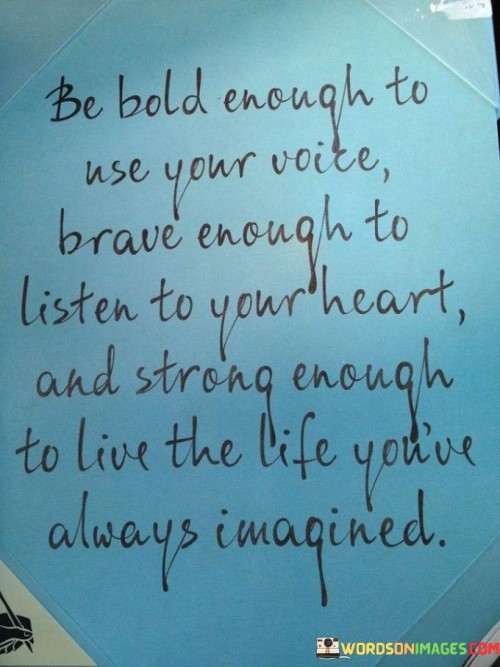 Be bold enough to
use your voice,
brave enough to
listen to your heart,
and strong enough
to live the life you've
always imagined.
WORDSONIMAGES.COM